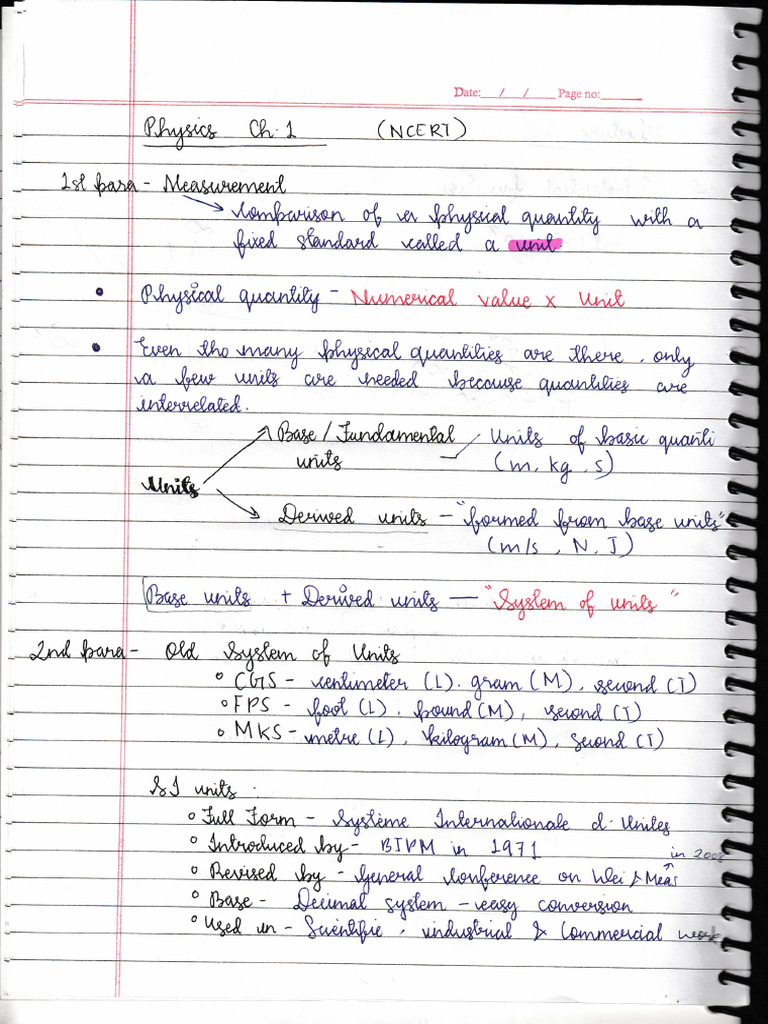 Date: / / Page no:
Physics Ch. 1 (NCERT)
1st para - Measurement
Comparison of a physical quantity with a
fixed standard called a unit
• Physical quantity - Numerical value x Unit
• Even tho many physical quantities are there, only
a few units are needed because quantities are
interrelated.
Base / Fundamental units - Units of basic quanti
(m, kg, s)
Units
Derived units - "formed from base units"
(m/s, N, J)
Base units + Derived units — "System of units"
2nd para - Old System of Units
° CGS - centimeter (L). gram (M), second (T)
° FPS - foot (L), pound (M), second (T)
° MKS - metre (L), kilogram (M), second (T)
SI units
° Full Form - Système Internationale d' Unites
° Introduced by - BIPM in 1971
in 2018
° Revised by - General Conference on Wei & Meas
° Base - Decimal system - easy conversion
° Used in - Scientific, industrial & Commercial work